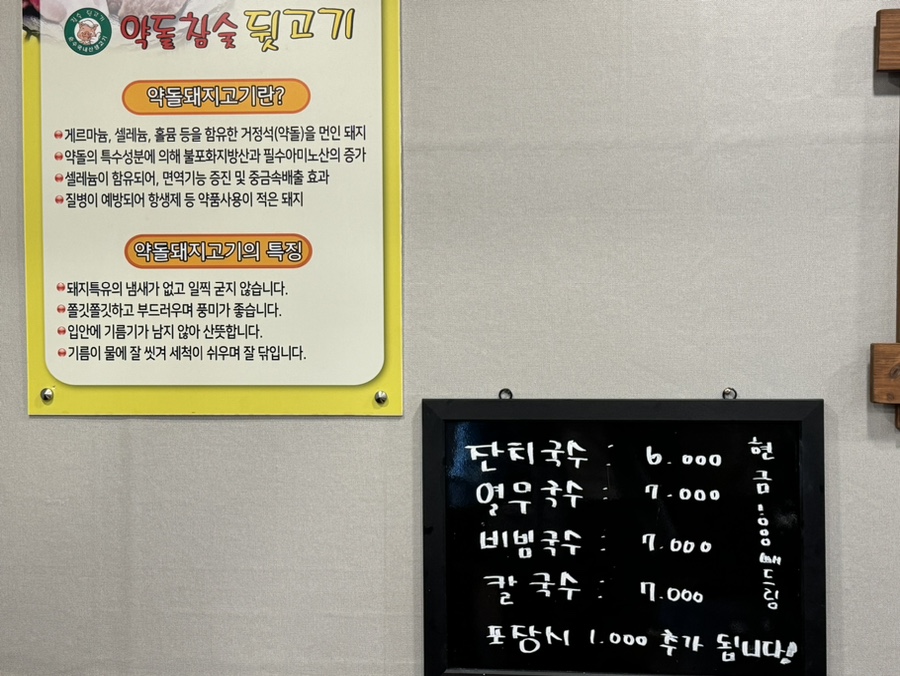 약돌참숯 뒷고기
약돌돼지고기란?
게르마늄, 셀레늄, 홀뮴 등을 함유한 거정석(약돌)을 먼인 돼지
약돌의 특수성분에 의해 불포화지방산과 필수아미노산의 증가
셀레늄이 함유되어, 면역기능 증진 및 중금속배출 효과
질병이 예방되어 항생제 등 약품사용이 적은 돼지
약돌돼지고기의 특징
돼지특유의 냄새가 없고 일찍 굳지 않습니다.
쫄깃쫄깃하고 부드러우며 풍미가 좋습니다.
입안에 기름기가 남지 않아 산뜻합니다.
기름이 물에 잘 씻겨 세척이 쉬우며 잘 닦입니다.
잔치국수 : 6.000
열무국수 : 7.000
비빔국수 : 7.000
칼국수 : 7.000
포장시 1.000 추가 됩니다!
현금
드림